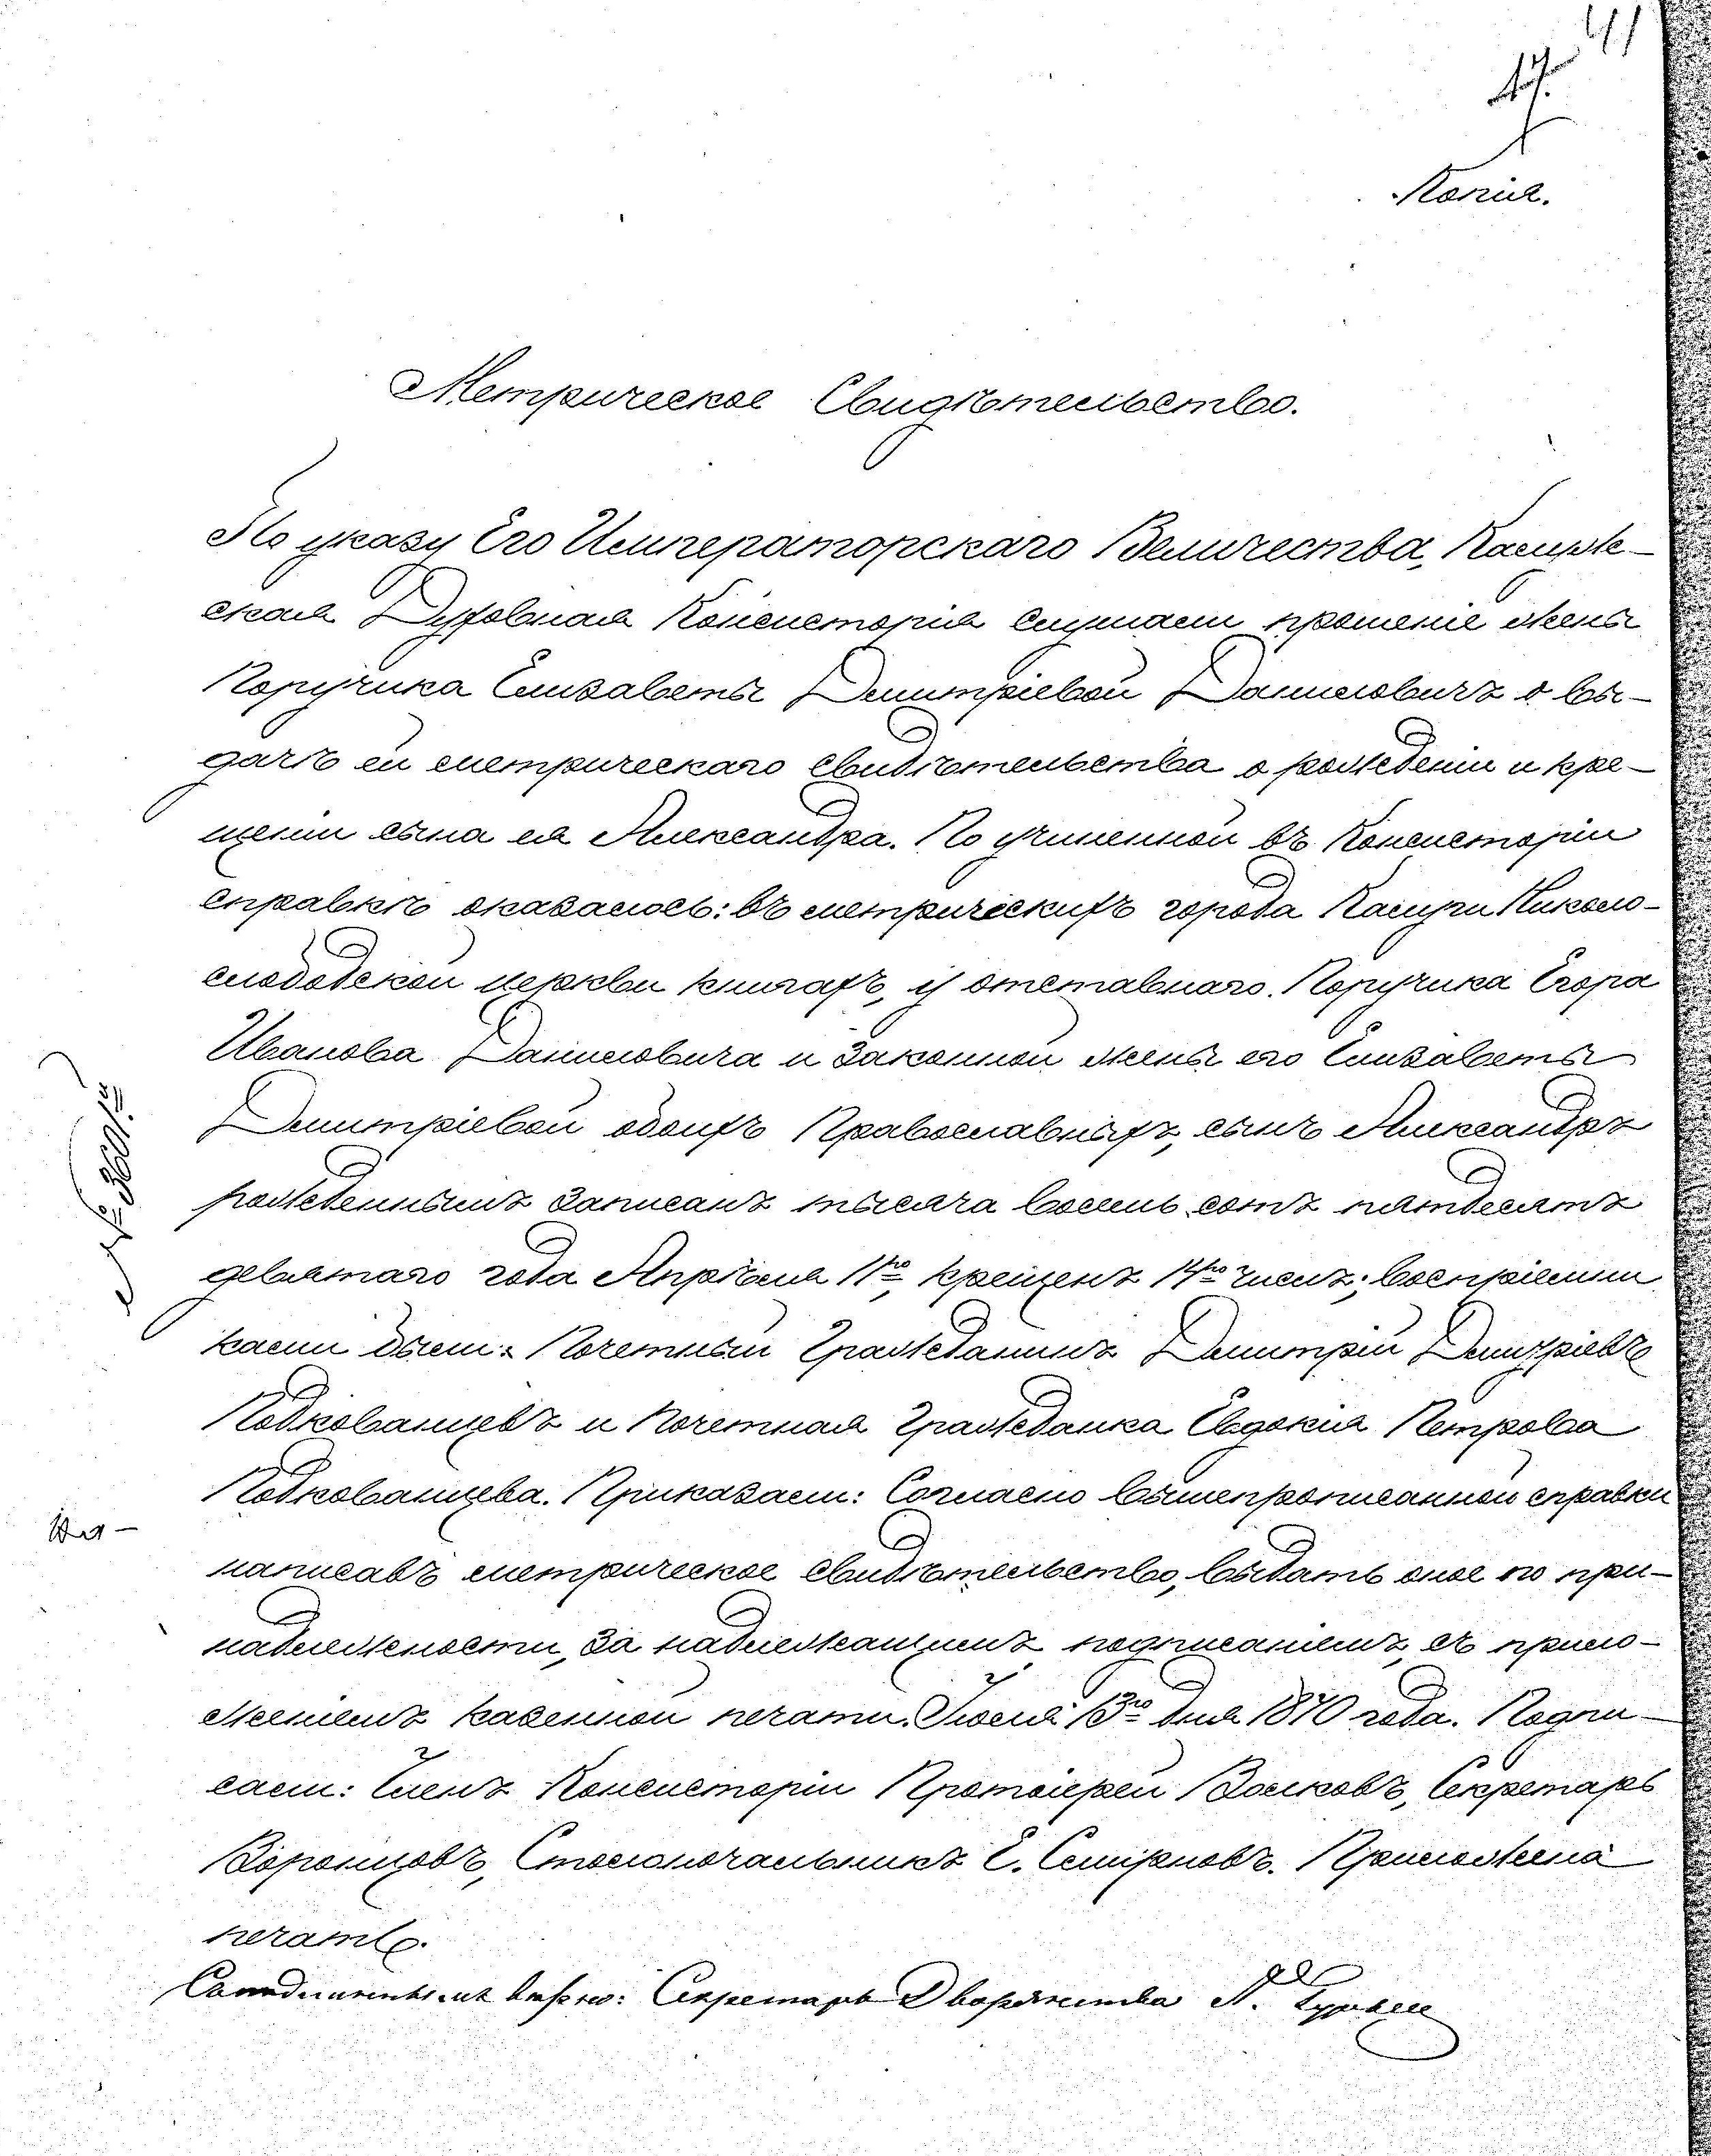 41
17.
Копія.
Метрическое Свидѣтельство.
По указу Его Императорскаго Величества, Калуж-
ская Духовная Консисторія слушали прошеніе жены
Поручика Елизаветы Димитріевой Даниловичъ о вы-
дачѣ ей метрическаго свидѣтельства о рожденіи и кре-
щеніи сына ея Александра. По учиненной въ Консисторіи
справкѣ оказалось: въ метрическихъ города Калуги Николо-
слободской церкви книгахъ, у отставнаго Поручика Егора
Иванова Даниловича и законной жены его Елизаветы
Димитріевой обоихъ Православныхъ, сынъ Александръ
рожденнымъ записанъ тысяча восемь сотъ пятдесятъ
девятаго года Апрѣля 11го, крещенъ 14го числъ; воспріемни
ками были: Почетный Гражданинъ Димитрій Димитріевъ
Подкованцевъ и Почетная Гражданка Евдокія Петрова
Подкованцева. Приказали: Согласно вышепрописанной справки
написавъ метрическое свидѣтельство, выдать оное по при-
надлежности, за надлежащимъ подписаніемъ, съ прило-
женіемъ казенной печати. Іюля 13го дня 1870 года. Подпи-
сали: Членъ Консисторіи Протоіерей Волковъ, Секретарь
Воронцовъ, Столоначальникъ Е. Смирновъ. Приложена
печать.
Секретарь Дворянства А.
№ 3601й